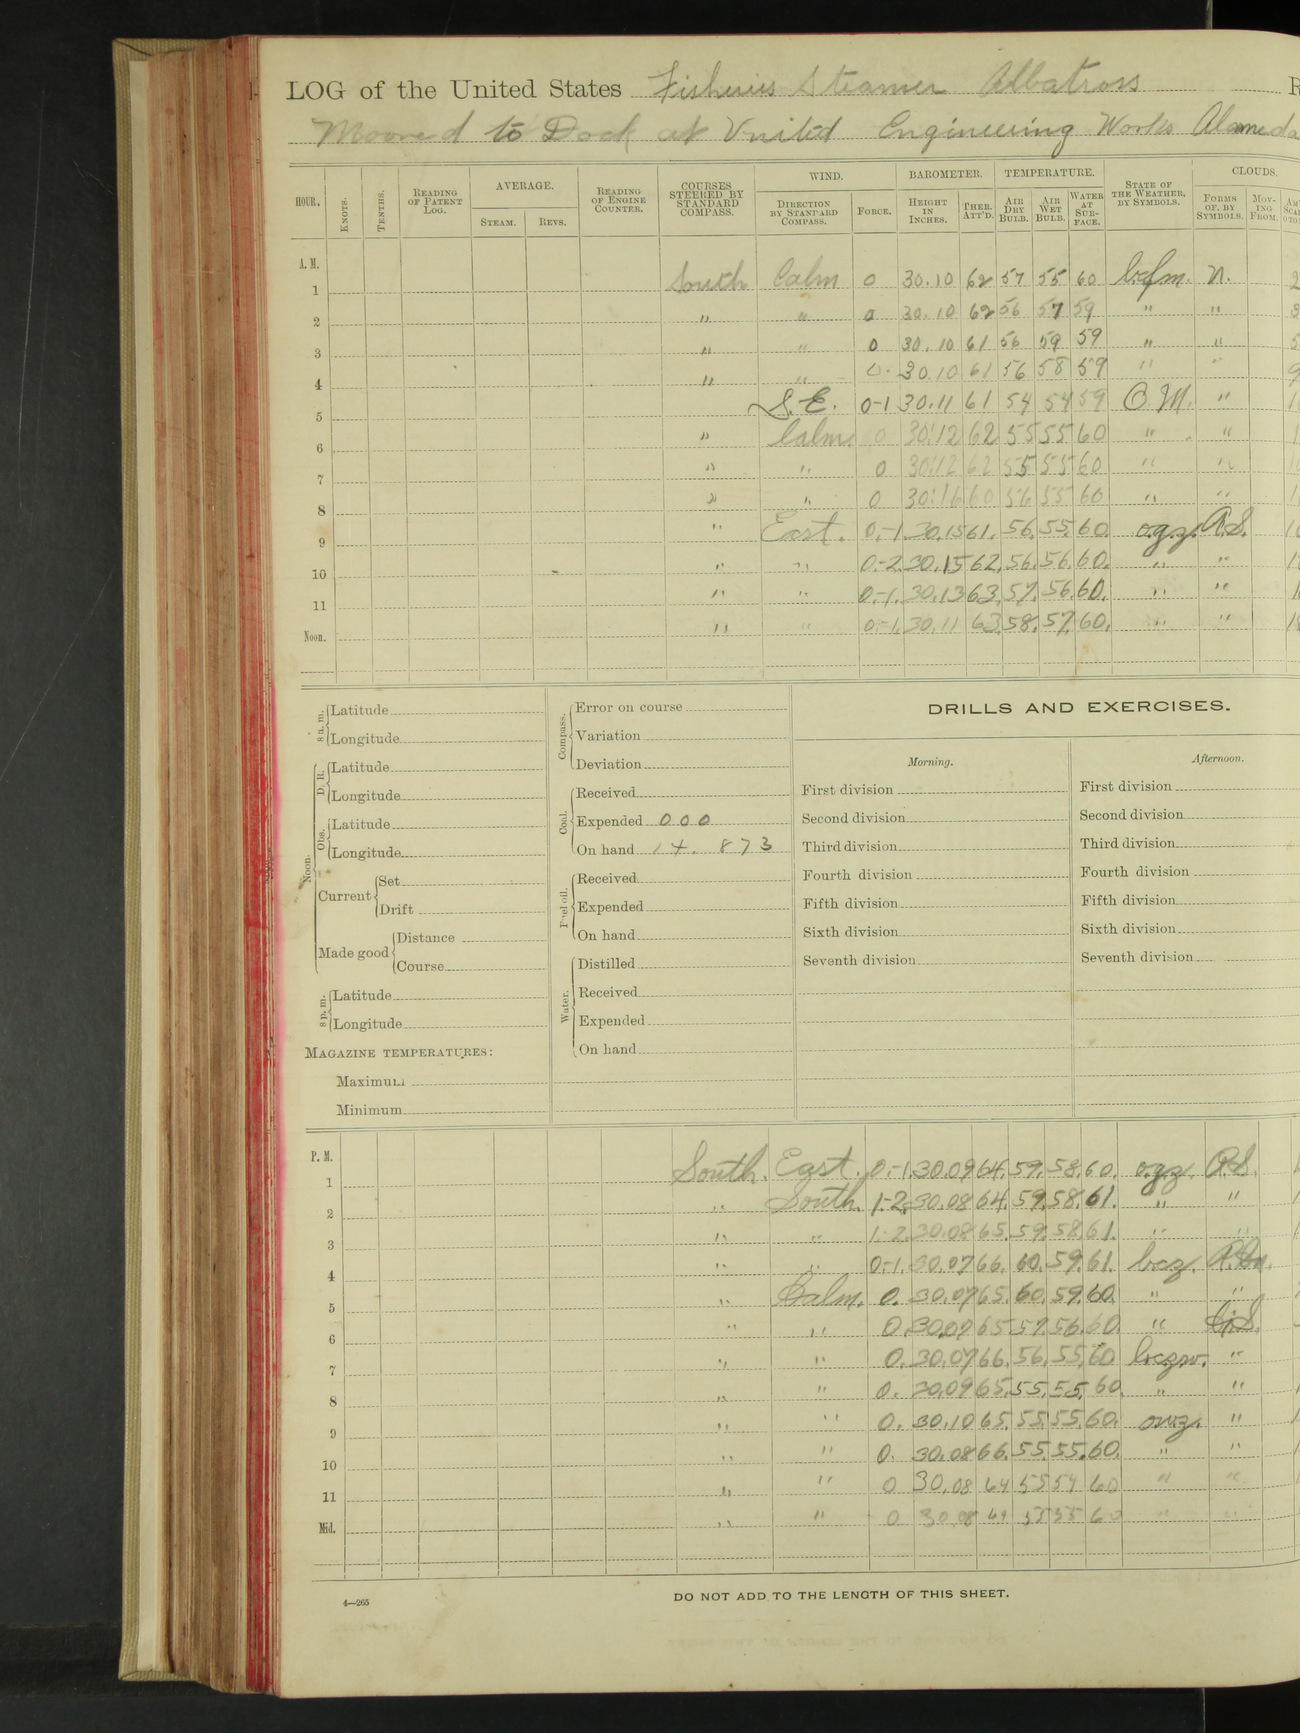 LOG of the United States Fisheries Steamer Albatross
Moored to Dock at United Engineering Works Alameda
HOUR. KNOTS. TENTHS. READING OF PATENT LOG. AVERAGE. STEAM. REVS. READING OF ENGINE COUNTER. COURSES STEERED BY STANDARD COMPASS. WIND. DIRECTION BY STANDARD COMPASS. FORCE. BAROMETER. HEIGHT IN INCHES. THER. ATT'D. TEMPERATURE. AIR DRY BULB. AIR WET BULB. WATER AT SURFACE. STATE OF THE WEATHER, BY SYMBOLS. CLOUDS. FORMS OF, BY SYMBOLS. MOVING FROM.
A. M.
1 South Calm 0 30.10 62 57 55 60 b.c.f.m. N.
2 " " 0 30.10 62 56 57 59 " "
3 " " 0 30.10 61 56 59 59 " "
4 " " 0. 30.10 61 56 58 59 " "
5 S.E. 0-1 30.11 61 54 54 59 O.M. "
6 " Calm. 0 30.12 62 55 55 60 " "
7 " " 0 30.12 62 55 55 60 " "
8 " " 0 30.16 60 56 55 60 " "
9 " East. 0.-1. 30.15 61. 56. 55. 60. o.g.z. A.S.
10 " " 0.-2. 30.15 62. 56. 56. 60. " "
11 " " 0.-1. 30.13 63. 57. 56. 60. " "
Noon. " " 0.-1. 30.11 63. 58. 57. 60. " "
8 a. m. Latitude
Longitude
Noon. D. R. Latitude
Longitude
Obs. Latitude
Longitude
Current Set
Drift
Made good Distance
Course
8 p. m. Latitude
Longitude
MAGAZINE TEMPERATURES:
Maximum
Minimum
Compass. Error on course
Variation
Deviation
Coal. Received
Expended 000
On hand 14. 873
Fuel oil. Received
Expended
On hand
Water. Distilled
Received
Expended
On hand
DRILLS AND EXERCISES.
Morning.
First division
Second division
Third division
Fourth division
Fifth division
Sixth division
Seventh division
Afternoon.
First division
Second division
Third division
Fourth division
Fifth division
Sixth division
Seventh division
P. M.
1 South. East. 0.-1. 30.09 64. 59. 58. 60. o.g.z. A.S.
2 " South. 1-2. 30.08 64. 59. 58. 61. " "
3 " " 1-2. 30.08 65. 59. 58. 61. " "
4 " " 0-1. 30.07 66. 60. 59. 61. b.c.z.
5 " Calm. 0. 30.07 65. 60. 59. 60. " "
6 " " 0. 30.07 65. 57. 56. 60. "
7 " " 0. 30.07 66. 56. 55. 60 b.c.z.w. "
8 " " 0. 30.09 65. 55. 55. 60. " "
9 " " 0. 30.10 65. 55. 55. 60. o.w.z. "
10 " " 0. 30.08 66. 55. 55. 60. " "
11 " " 0 30.08 64 55 54 60 " "
Mid. " " 0 30.08 64 55 55 60 " "
4—265
DO NOT ADD TO THE LENGTH OF THIS SHEET.